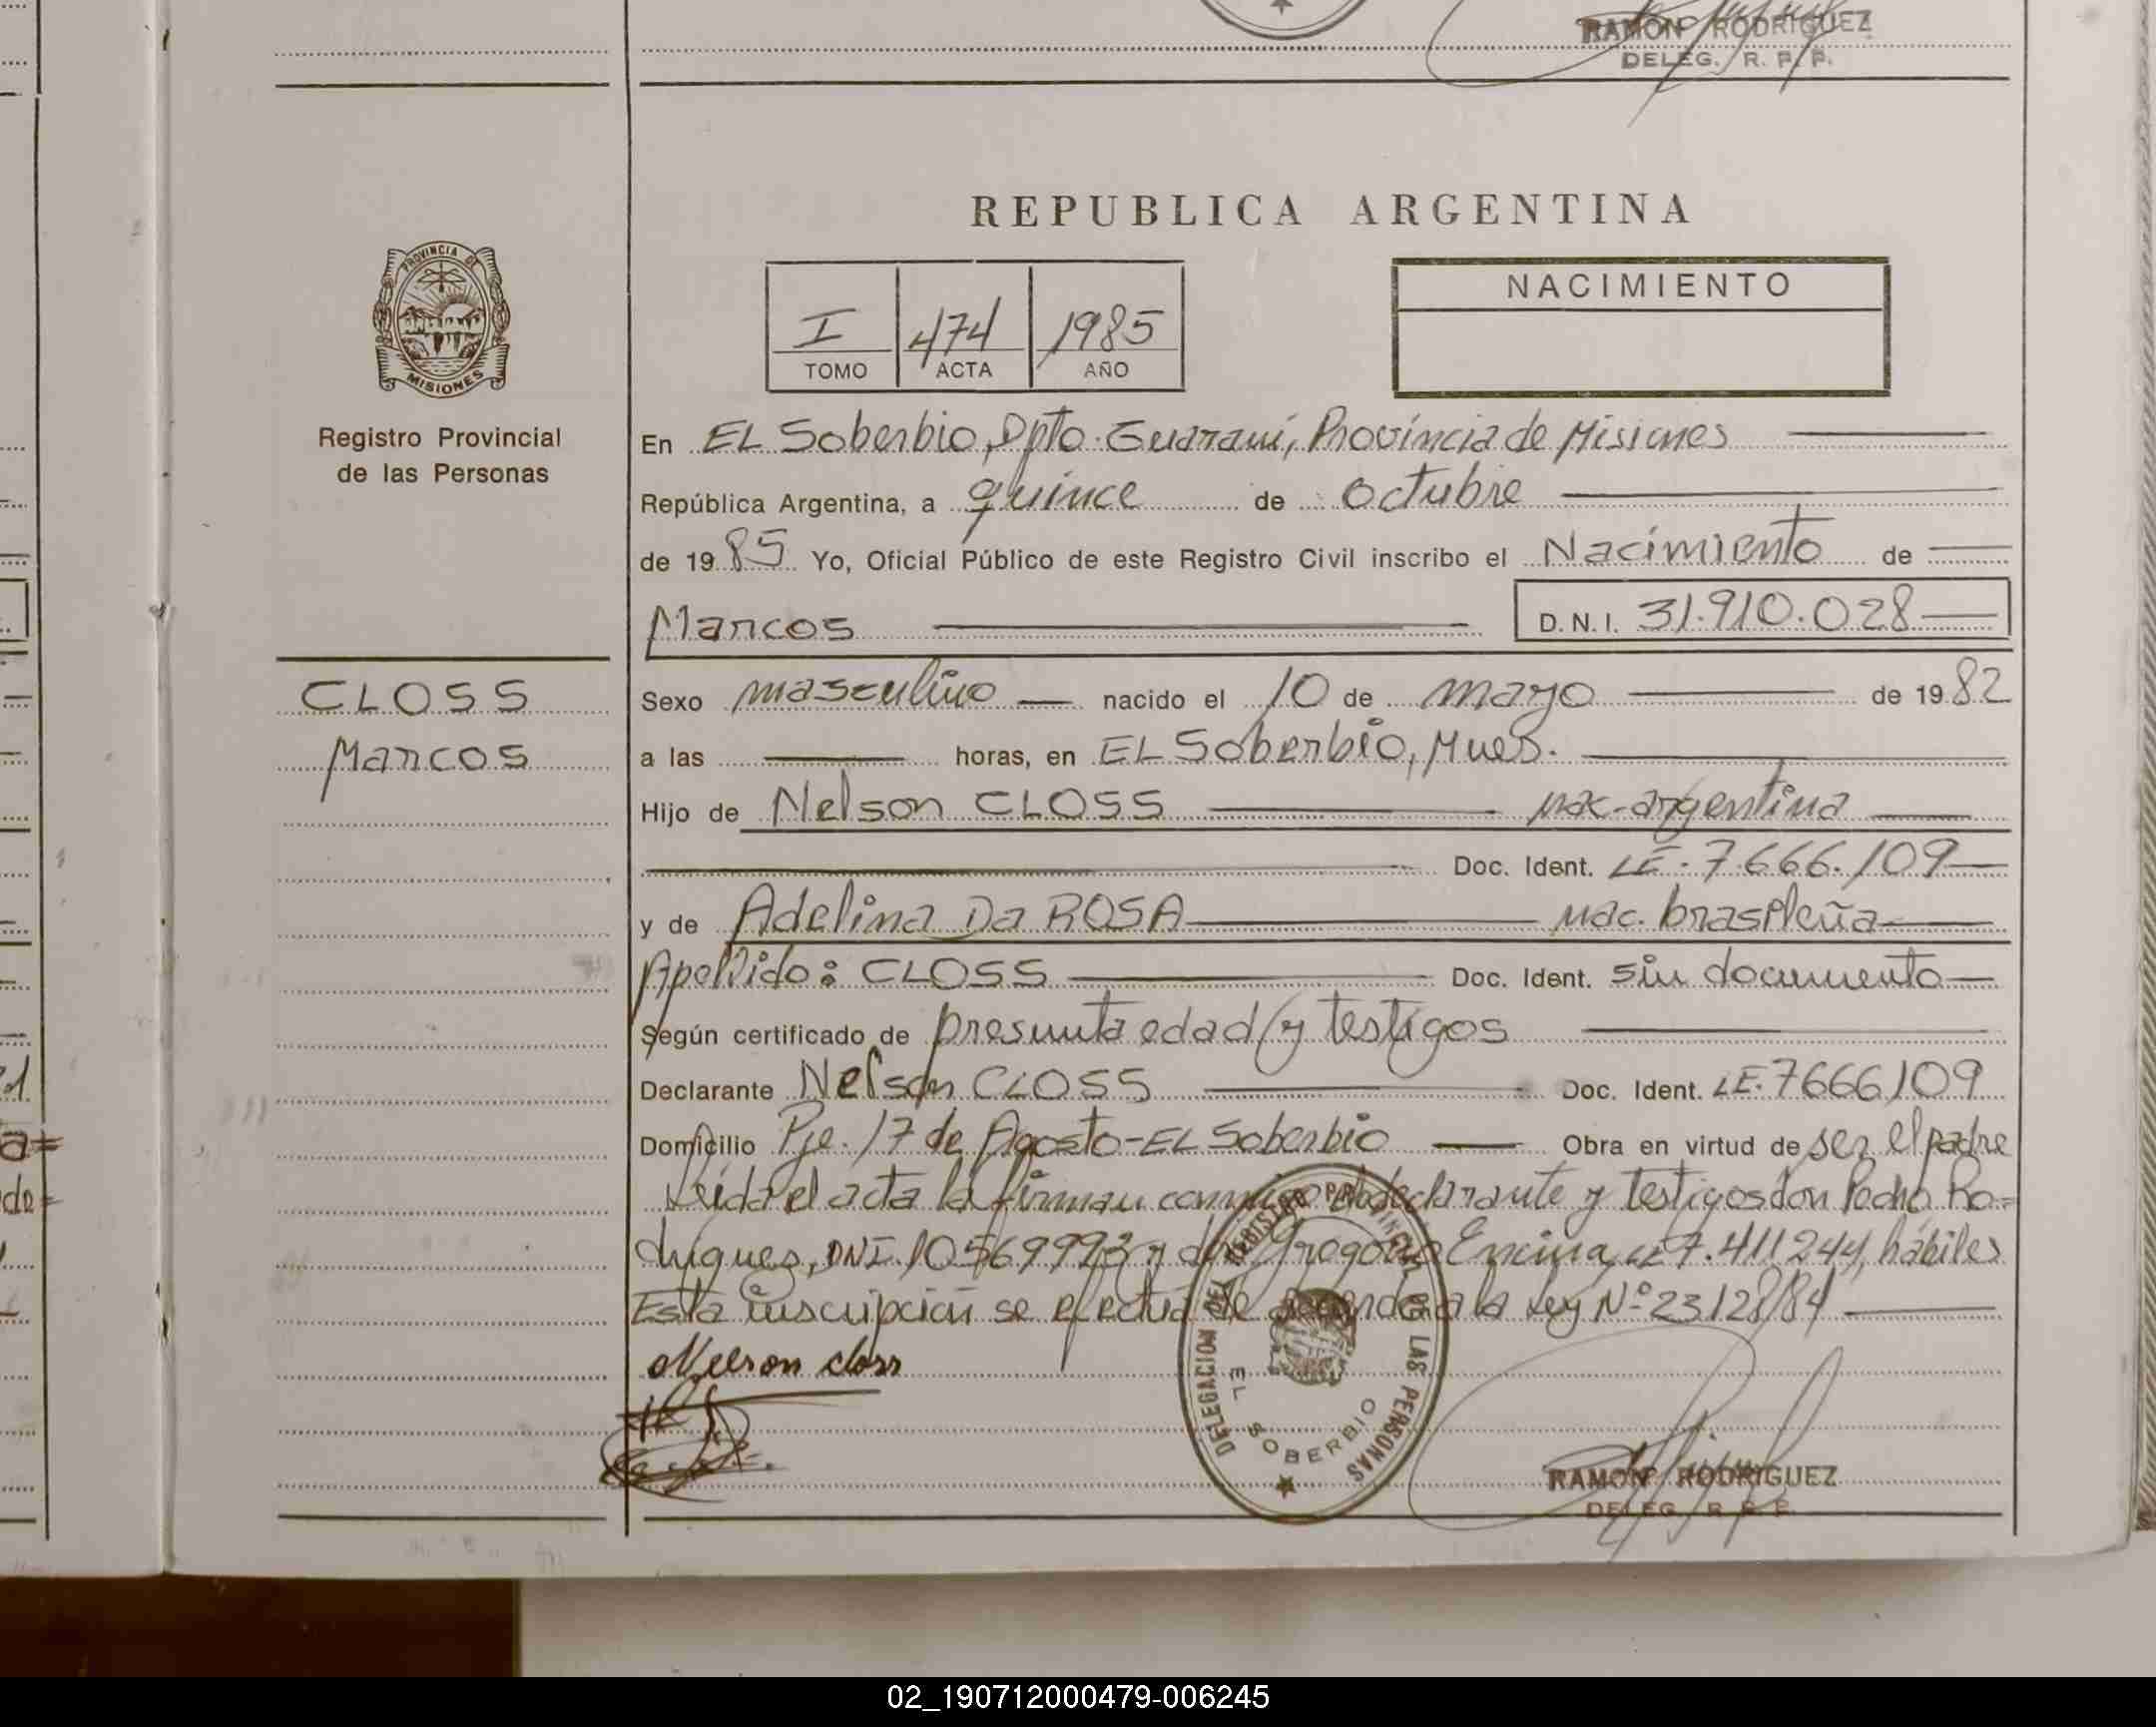 RAMON RODRIGUEZ
DELEG. R. P. P.
REPUBLICA ARGENTINA
PROVINCIA DE
MISIONES
Registro Provincial
de las Personas
I 474 1985
TOMO ACTA AÑO
NACIMIENTO
En EL Soberbio, Dpto. Guaraní, Provincia de Misiones
República Argentina, a quince de octubre
de 1985 Yo, Oficial Público de este Registro Civil inscribo el Nacimiento de
Marcos D.N.I. 31.910.028
CLOSS
Marcos
Sexo masculino nacido el 10 de mayo de 1982
a las horas, en EL Soberbio, Mnes.
Hijo de Nelson CLOSS nac. argentina
Doc. Ident. LE. 7.666.109
y de Adelina Da ROSA nac. brasileña
Apellido: CLOSS Doc. Ident. sin documento
Según certificado de presunta edad y testigos
Declarante Nelson CLOSS Doc. Ident. LE. 7666109
Domicilio Pje. 17 de Agosto - EL Soberbio Obra en virtud de ser el padre
Leida el acta la firman conmigo el declarante y testigos don Pedro Ro=
drigues, DNI. 10569993 y don Gregorio Encina, LE 7.411244, hábiles
Esta inscripción se efectúa de acuerdo a la Ley Nº 23128/84
Nelson closs
DELEGACION DEL REGISTRO PROVINCIAL DE LAS PERSONAS
EL SOBERBIO
RAMON RODRIGUEZ
DELEG. R. P. P.
02_190712000479-006245